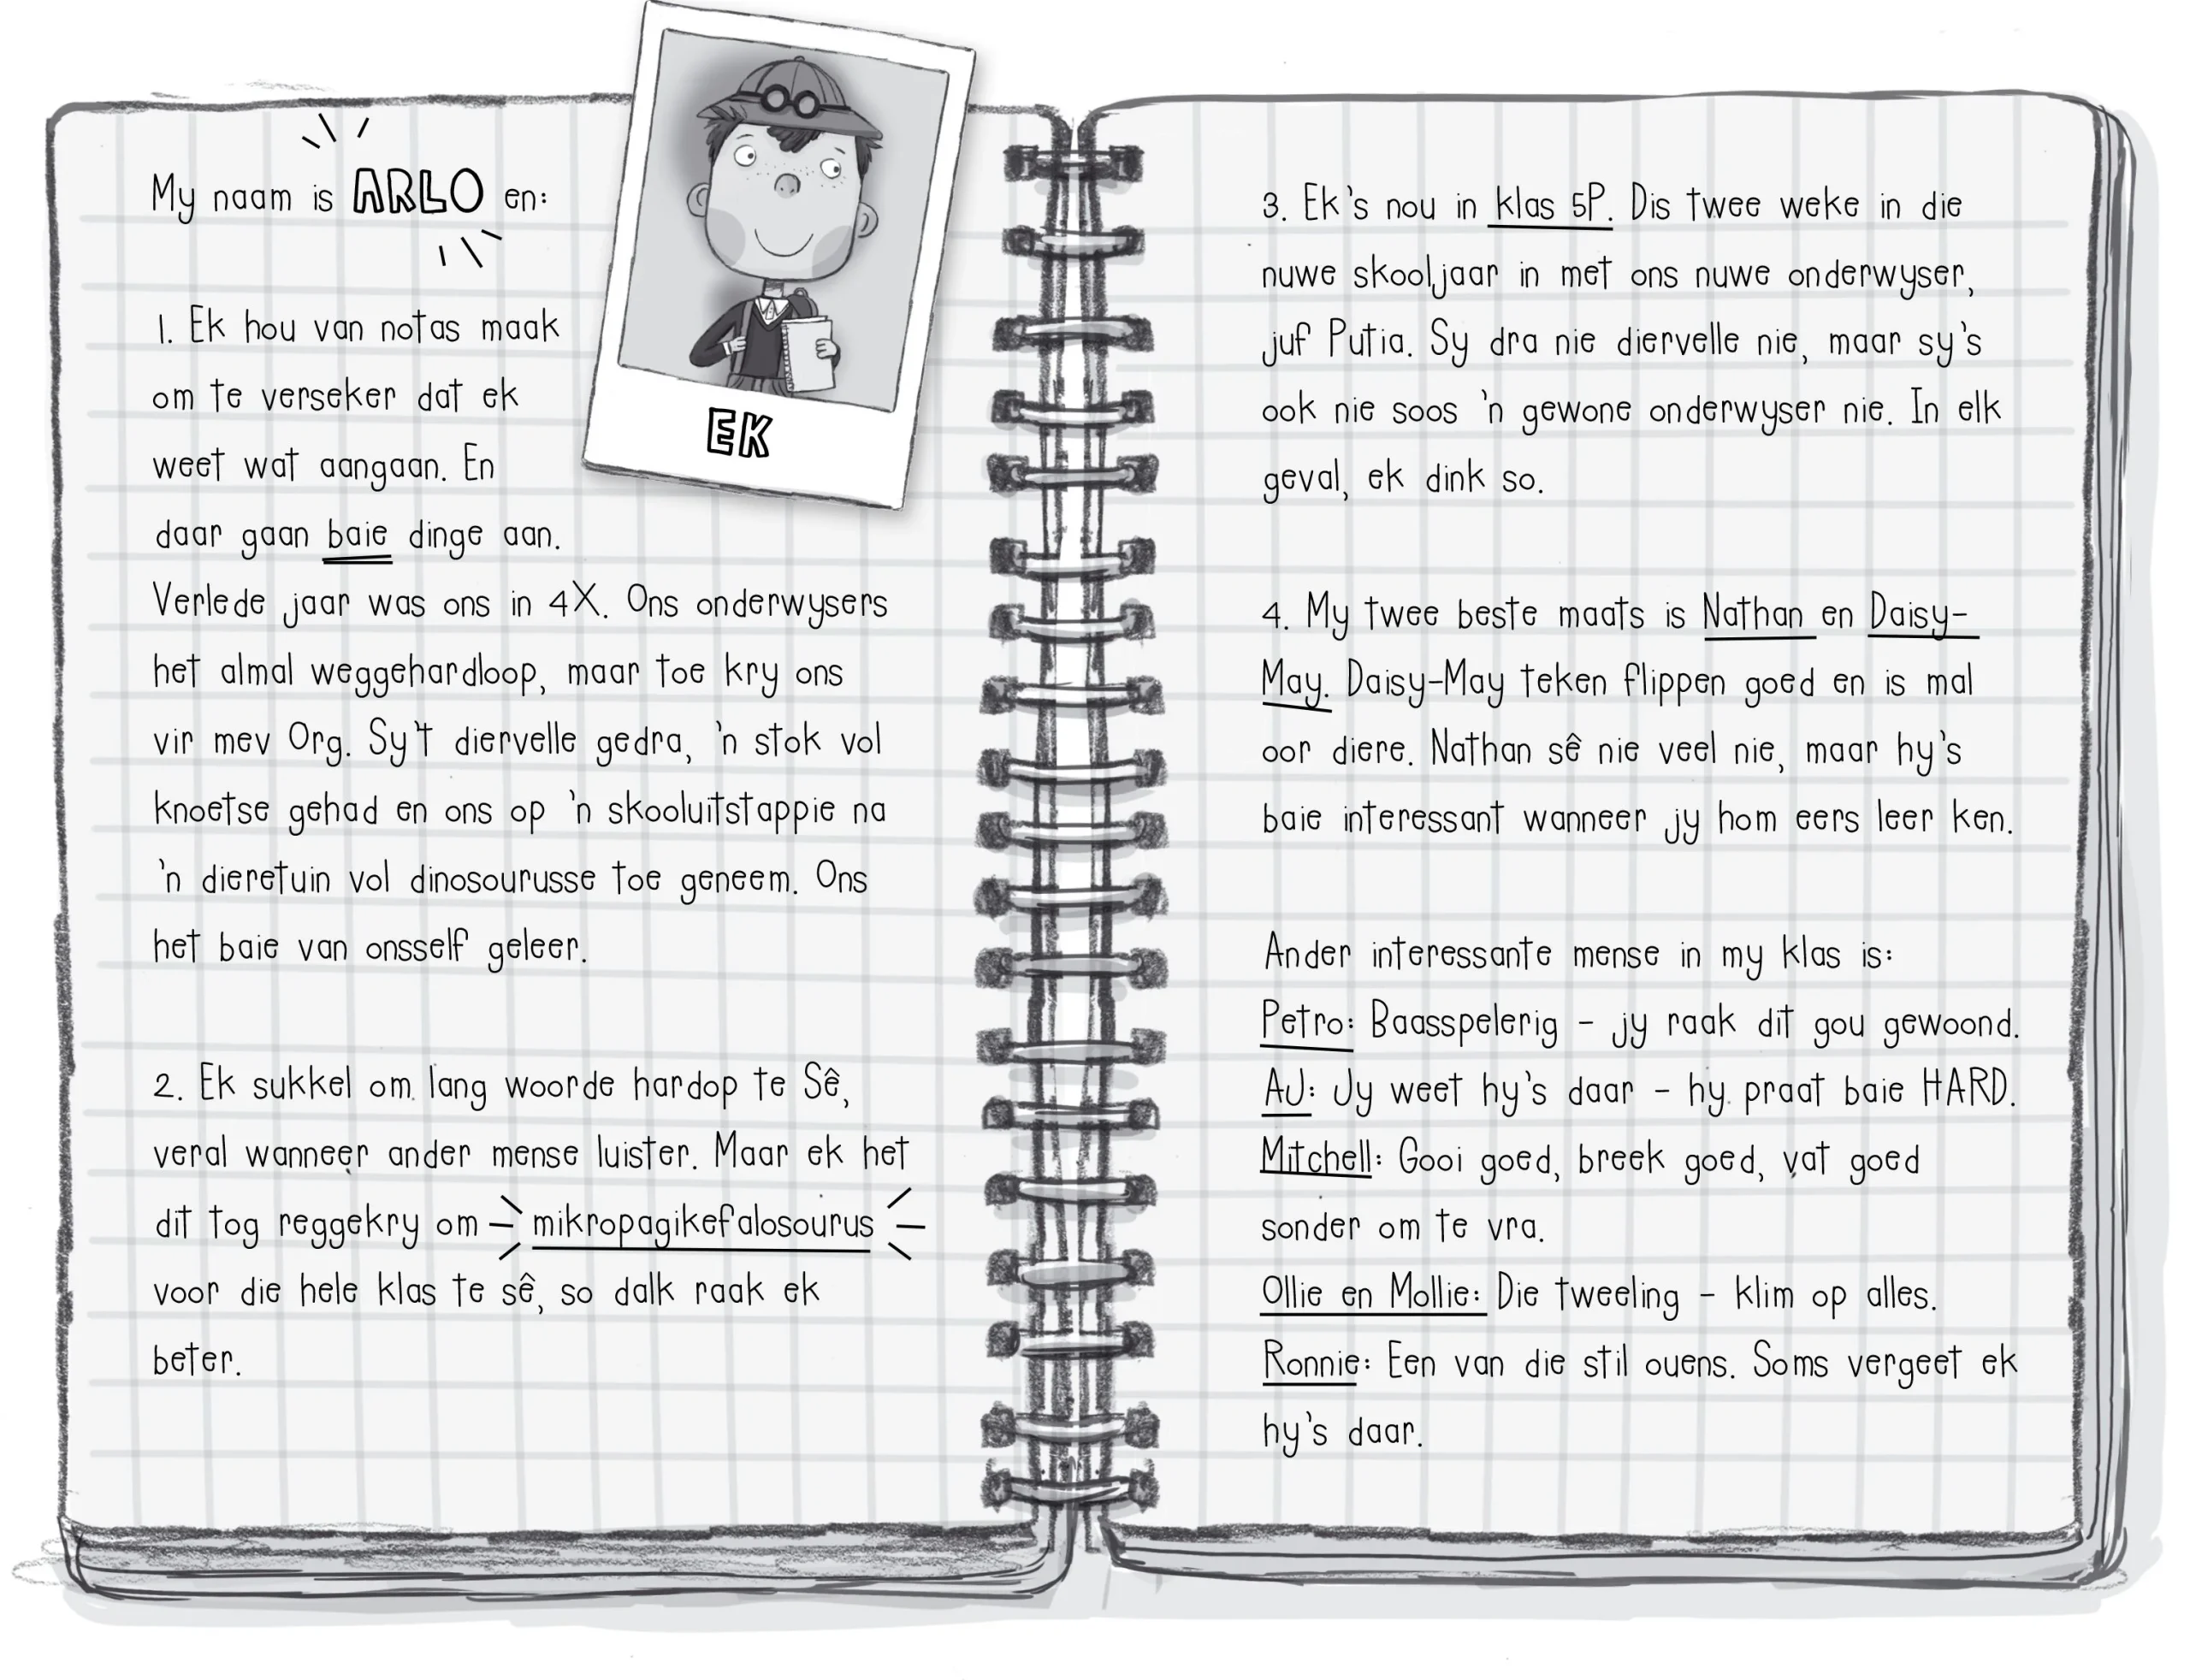 My naam is ARLO en:
EK
1. Ek hou van notas maak
om te verseker dat ek
weet wat aangaan. En
daar gaan baie dinge aan.
Verlede jaar was ons in 4X. Ons onderwysers
het almal weggehardloop, maar toe kry ons
vir mev Org. Sy't diervelle gedra, 'n stok vol
knoetse gehad en ons op 'n skooluitstappie na
'n dieretuin vol dinosourusse toe geneem. Ons
het baie van onsself geleer.
2. Ek sukkel om lang woorde hardop te Sê,
veral wanneer ander mense luister. Maar ek het
dit tog reggekry om mikropagikefalosourus
voor die hele klas te sê, so dalk raak ek
beter.
3. Ek's nou in klas 5P. Dis twee weke in die
nuwe skooljaar in met ons nuwe onderwyser,
juf Putia. Sy dra nie diervelle nie, maar sy's
ook nie soos 'n gewone onderwyser nie. In elk
geval, ek dink so.
4. My twee beste maats is Nathan en Daisy-
May. Daisy-May teken flippen goed en is mal
oor diere. Nathan sê nie veel nie, maar hy's
baie interessant wanneer jy hom eers leer ken.
Ander interessante mense in my klas is:
Petro: Baasspelerig – jy raak dit gou gewoond.
AJ: Jy weet hy's daar – hy praat baie HARD.
Mitchell: Gooi goed, breek goed, vat goed
sonder om te vra.
Ollie en Mollie: Die tweeling – klim op alles.
Ronnie: Een van die stil ouens. Soms vergeet ek
hy's daar.